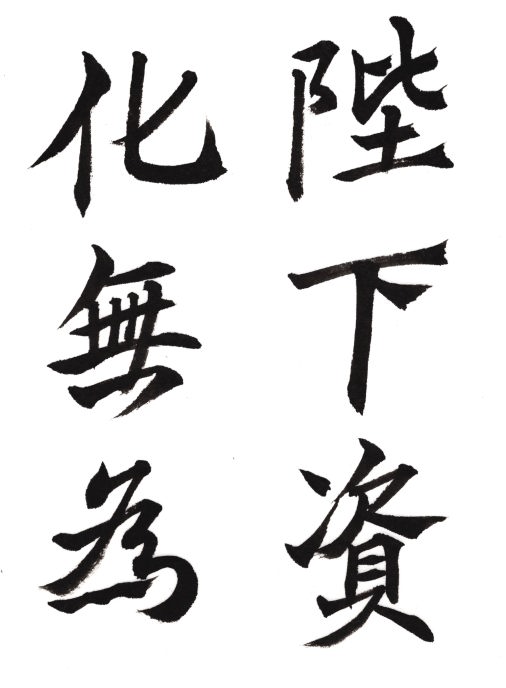 陛下資
化無為